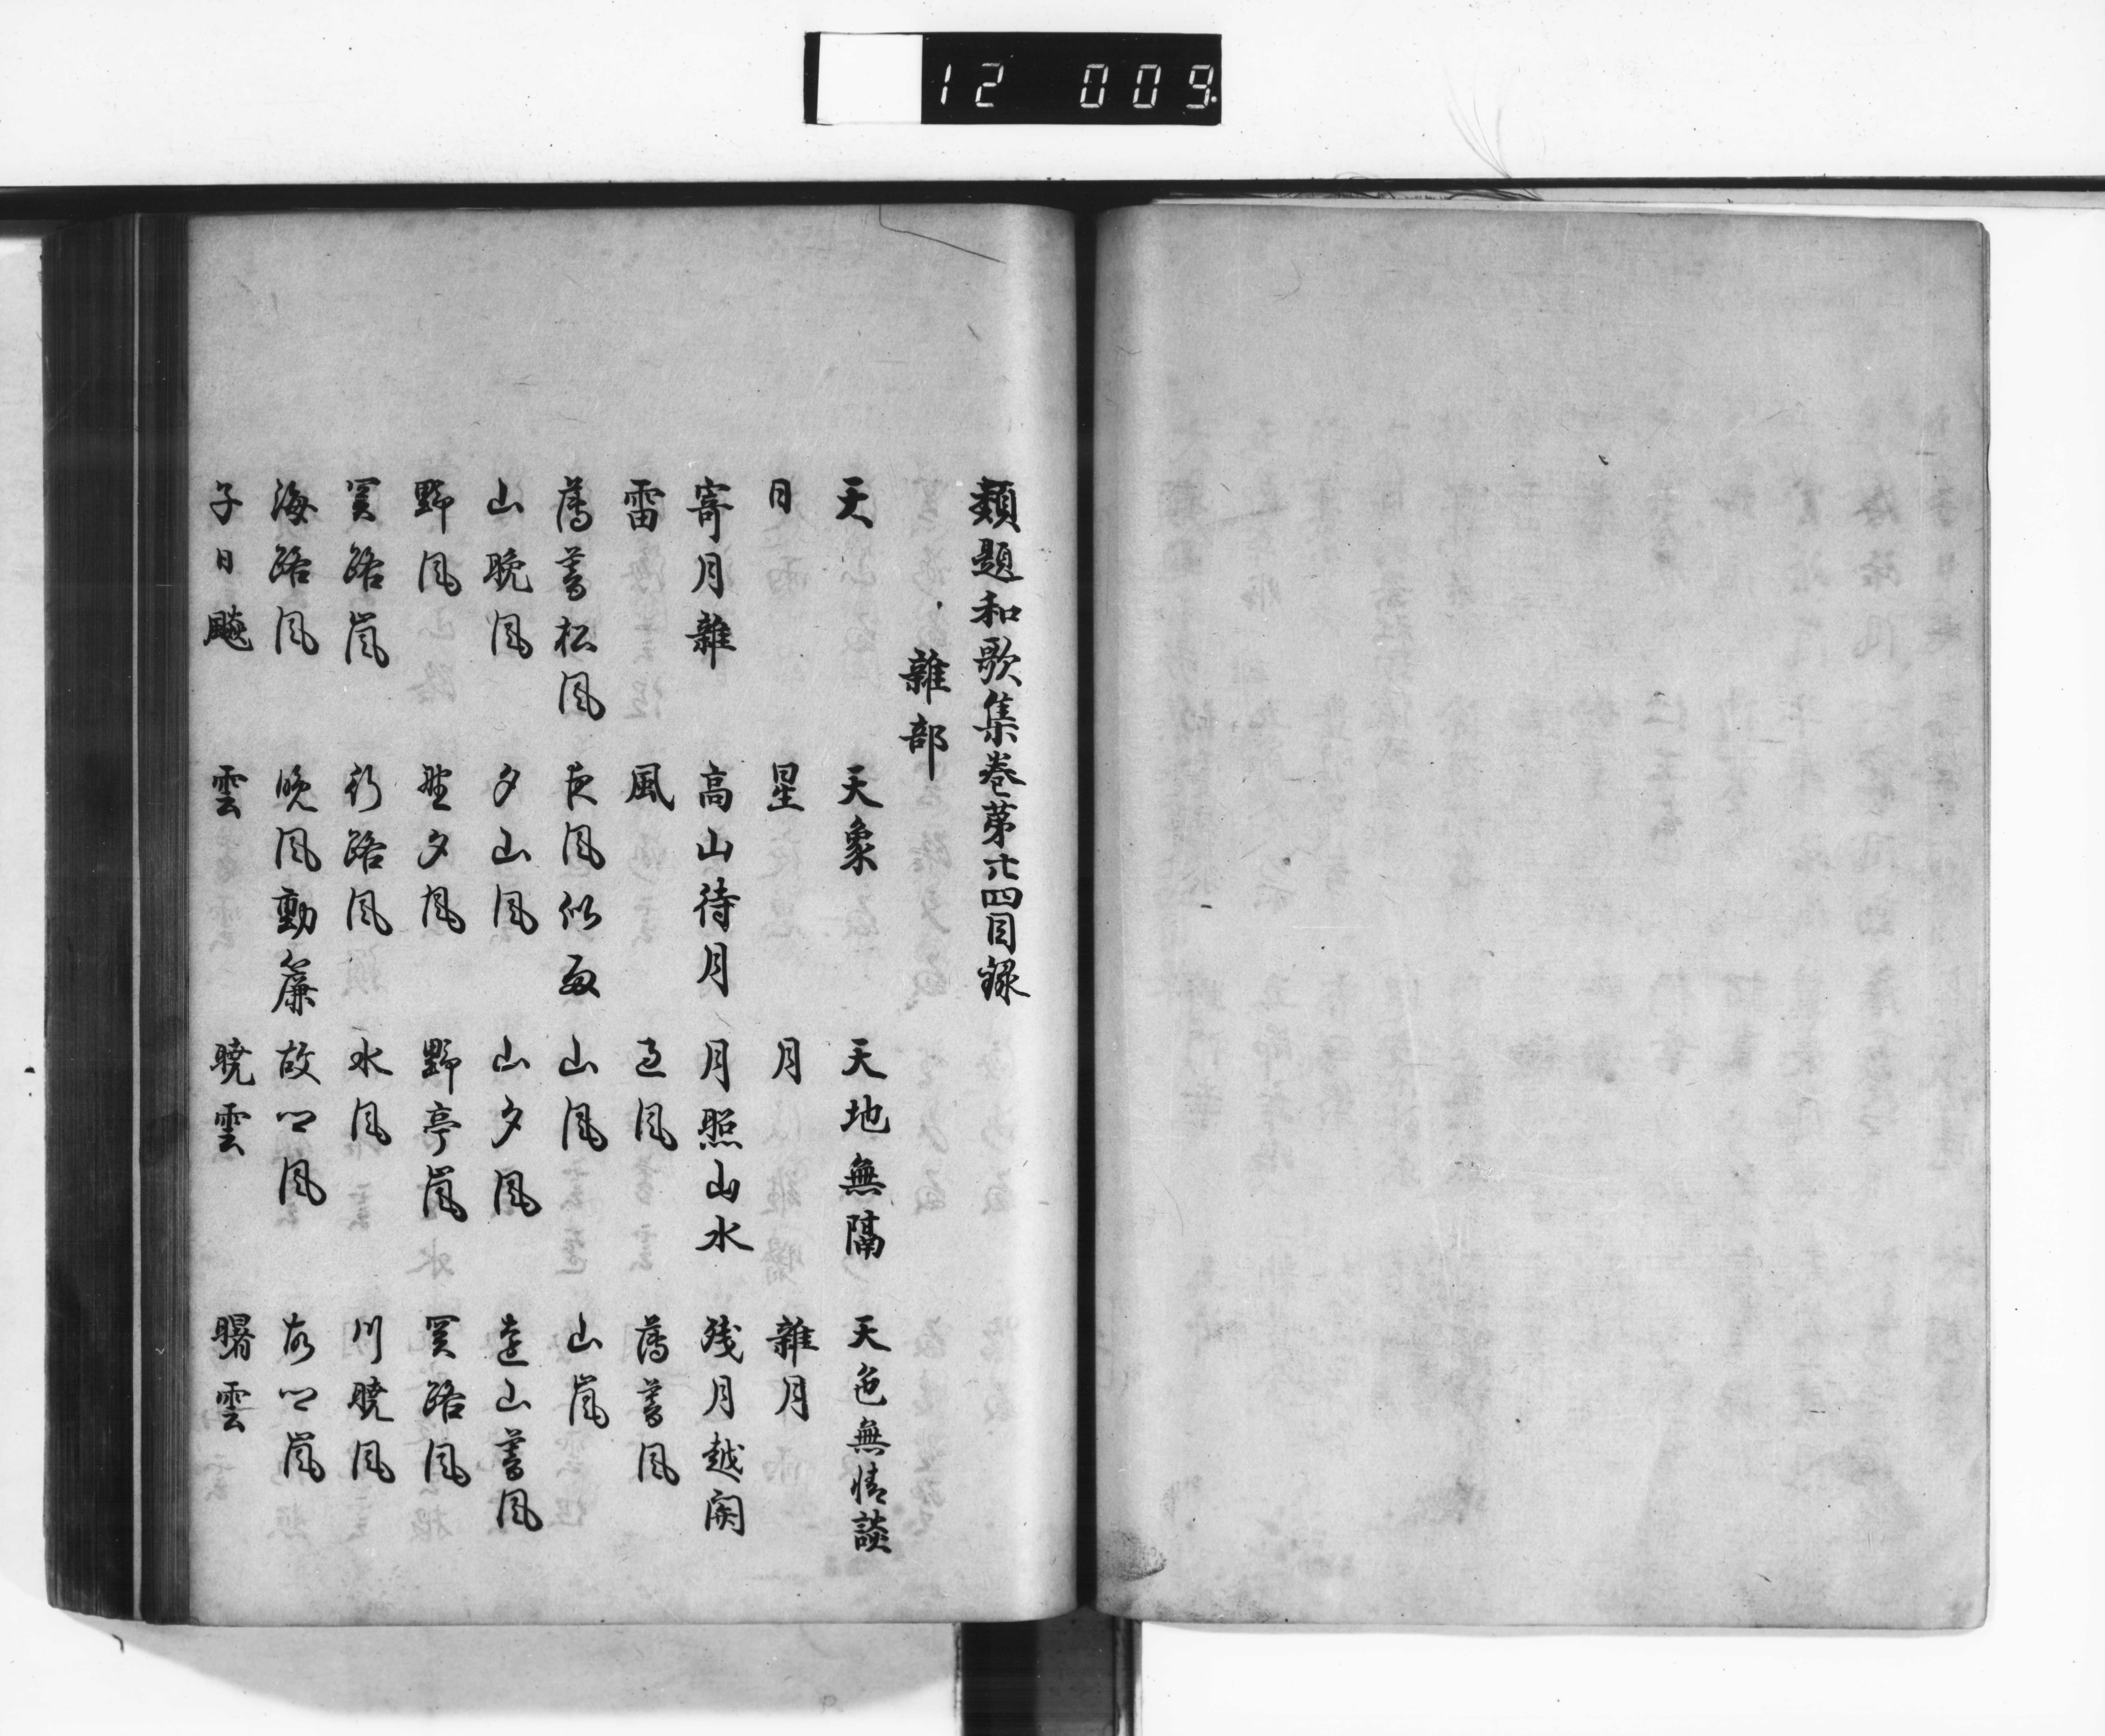 12 009
類題和歌集巻第廿四目録
雜部
天 天象 天地無隔 天色無情談
日 星 月 雜月
寄月雜 高山待月 月照山水 残月越関
雷 風 風 薄暮風
薄暮松風 夜風似雨 山風 山嵐
山晩風 夕山風 山夕風 遠山暮風
野風 野夕風 野亭嵐 関路風
関路嵐 行路風 水風 川暁風
海路風 晩風動簾 故郷風 故郷嵐
子日 雲 暁雲 曙雲